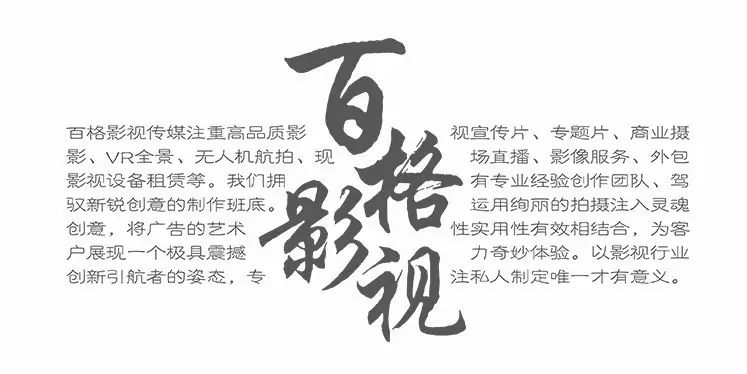 百格影视
百格影视传媒注重高品质影视宣传片、专题片、商业摄
影、VR全景、无人机航拍、现场直播、影像服务、外包
影视设备租赁等。我们拥有专业经验创作团队、驾
驭新锐创意的制作班底。运用绚丽的拍摄注入灵魂
创意，将广告的艺术性实用性有效相结合，为客
户展现一个极具震撼力奇妙体验。以影视行业
创新引航者的姿态，专注私人制定唯一才有意义。